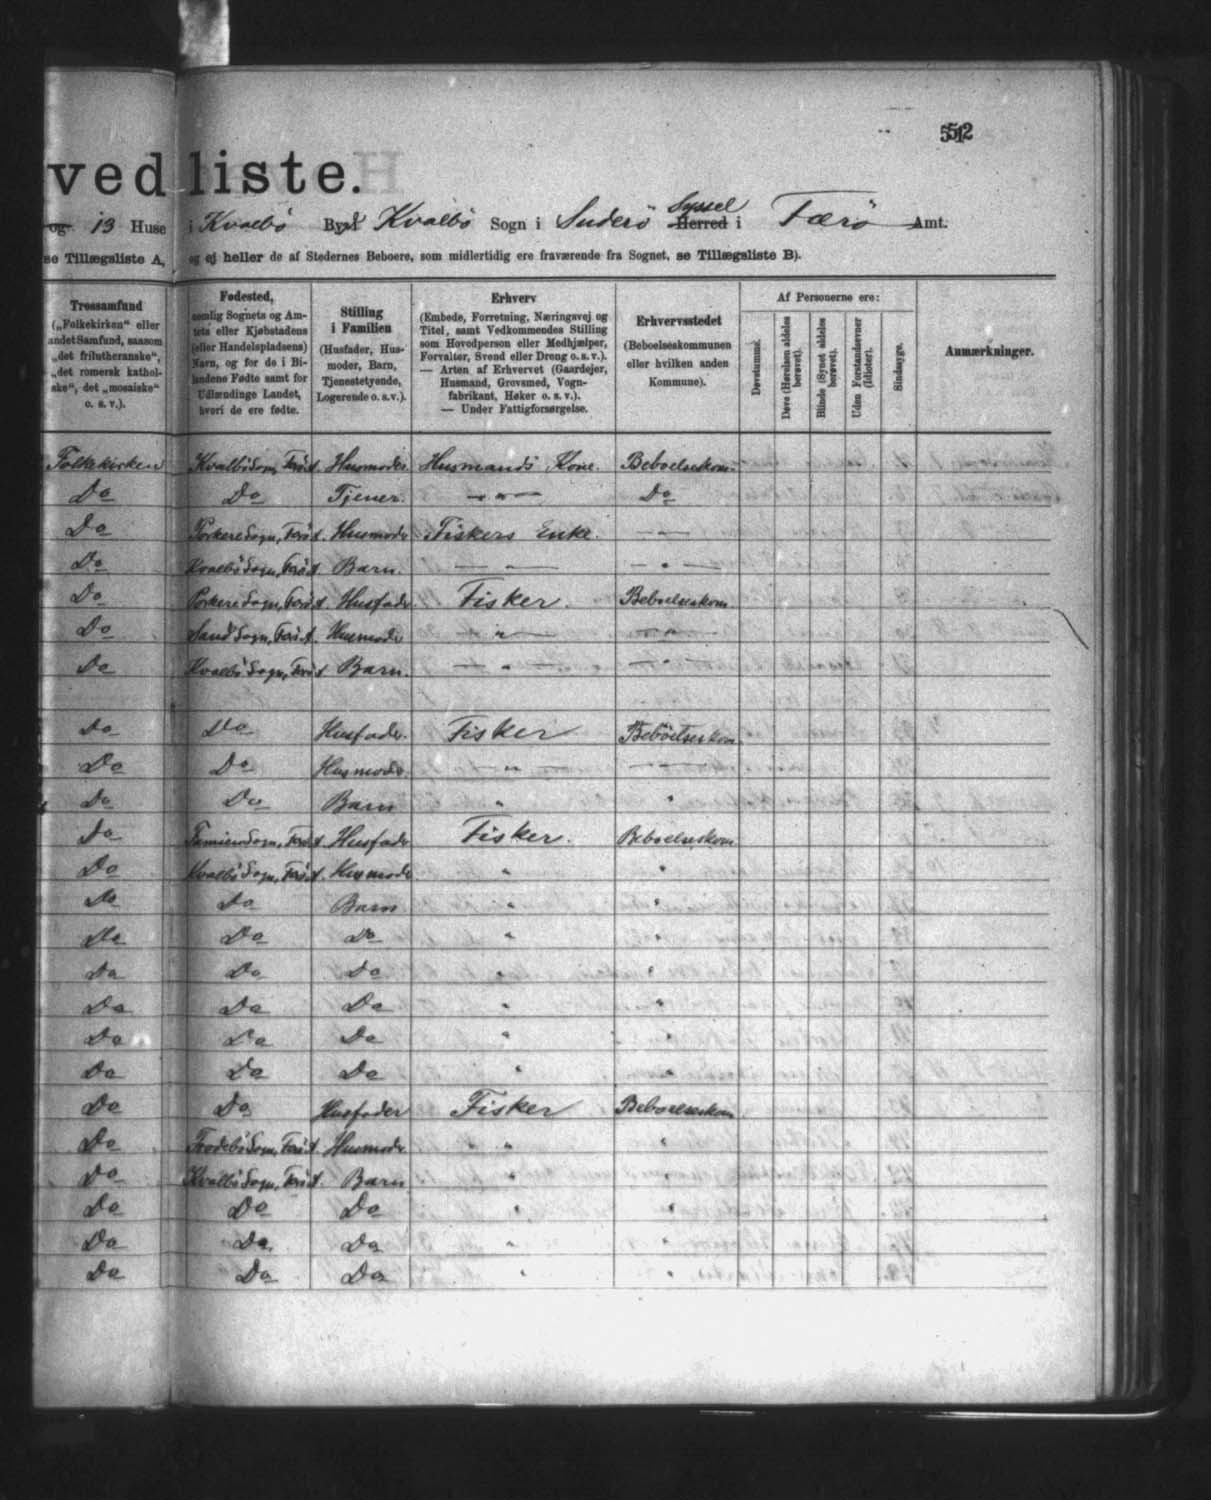 552
ved liste.
og 13 Huse i Kvalbö Bygd Kvalbö Sogn i Suderö Syssel Herred i Færö Amt.
se Tillægsliste A, og ej heller de af Stedernes Beboere, som midlertidig ere fraværende fra Sognet, se Tillægsliste B).
Trossamfund
(„Folkekirken“ eller
andet Samfund, saasom
„det frilutheranske“,
„det romersk kathol-
ske“, det „mosaiske“
o. s. v.).
Fødested,
nemlig Sognets og Am-
tets eller Kjøbstadens
(eller Handelspladsens)
Navn, og for de i Bi-
landene Fødte samt for
Udlændinge Landet,
hvori de ere fødte.
Stilling
i Familien
(Husfader, Hus-
moder, Barn,
Tjenestetyende,
Logerende o. s. v.).
Erhverv
(Embede, Forretning, Næringsvej og
Titel, samt Vedkommendes Stilling
som Hovedperson eller Medhjælper,
Forvalter, Svend eller Dreng o. s. v.).
— Arten af Erhvervet (Gaardejer,
Husmand, Grovsmed, Vogn-
fabrikant, Høker o. s. v.).
— Under Fattigforsørgelse.
Erhvervsstedet
(Beboelseskommunen
eller hvilken anden
Kommune).
Af Personerne ere:
Døvstumme.
Døve (Hørelsen aldeles berøvet).
Blinde (Synet aldeles berøvet).
Uden Forstandsevner (Idioter).
Sindssyge.
Anmærkninger.
Folkekirken Kvalbö Sogn, Færö A. Husmoder Husmands Kone. Beboelseskom.
Do Do Tjener. — " — Do
Do Porkere Sogn, Færö A. Husmoder Fiskers Enke. — —
Do Kvalbö Sogn, Færö A Barn. — — — " —
Do Porkere Sogn, Færö A Husfader Fisker. Beboelseskom
Do Sand Sogn, Færö A Husmoder — " — — " —
Do Kvalbö Sogn, Færö A Barn. — " — — " —
Do Do Husfader. Fisker Beboelseskom.
Do Do Husmoder. — " — — —
Do Do Barn " "
Do Famien Sogn, Færö A Husfader Fisker. Beboelseskom
Do Kvalbö Sogn, Færö A. Husmoder " "
Do Do Barn " "
Do Do Do " "
Do Do Do " "
Do Do Do " "
Do Do Do " "
Do Do Do " "
Do Do Husfader Fisker Beboelseskom
Do Frodebö Sogn, Færö A Husmoder " " "
Do Kvalbö Sogn, Færö A. Barn "
Do Do Do " "
Do Do Do " "
Do Do Do " "